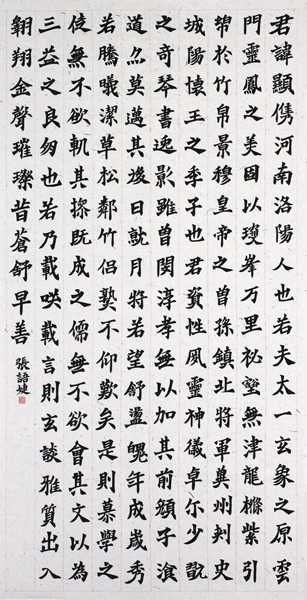 君諱顯儁河南洛陽人也若夫太一玄象之原雲
門靈鳳之美固以瓊峯万里祕壑無津龍樾紫引
綿於竹帛景穆皇帝之曾孫鎮北將軍冀州刺史
城陽懷王之季子也君資性夙靈神儀卓尔少翫
之奇琴書逸影雖曾閔淳孝無以加其前顏子湌
道亦莫邁其後日就月將若望舒盪魄年成歲秀
若騰曦潔草松鄰竹侶熟不仰歎矣是則慕學之
徒無不欲軌其操既成之儒無不欲會其文以為
三益之良朋也若乃載咲載言則玄談雅質出入
翱翔金聲璀璨昔蒼舒早善
張語